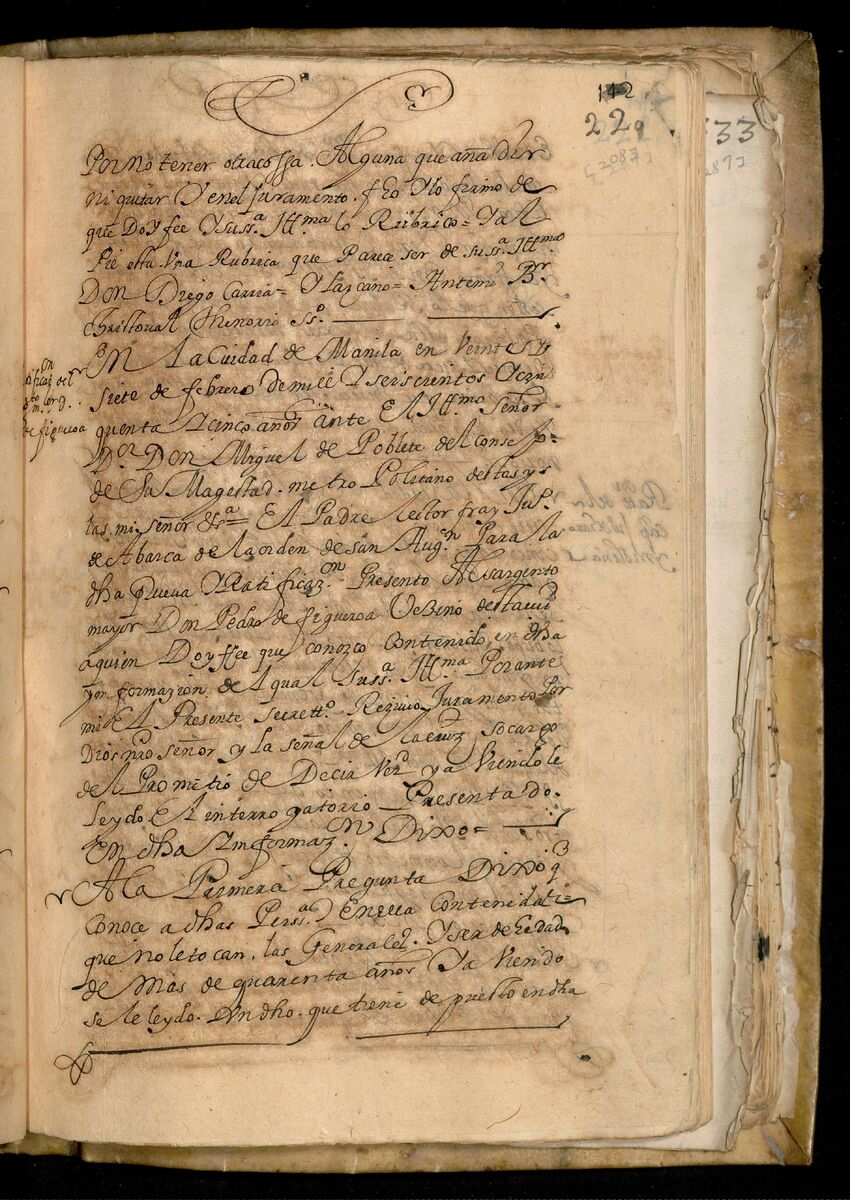 142
229
33
[2087]
Por No tener otra cossa. Alguna que aña dir
ni quitar Y en el Juramento. fho Y lo firmo de
que Doy fee Y su ssª. Illma lo Rubrico = Y al
Pie esta Una Rubrica que Parece ser de su ssª. Illma
Don Diego Carria = Y Lazcano = Antemi Br.
Christoual Thenorio Sso.
En La Ciudad de Manila en Veinte Y
siete de febrero de mill Y seiscientos Y cin
quenta Y cinco años ante El Illmo Señor
Dor Don Miguel de Poblete del conse Jo=
de Su Magestad. metro Politano destas ys
las. mi señor &ª = El Padre lector fray Jup.
de Abarca de la orden de san Augn Para la
dha prueua Y Rati ficazon Presento Al sargento
mayor Don Pedro de figueroa Vezino desta ciud
a quien Doy ffee que conozco Contenido, en dha
ynformazion. de l qual su ssª. Illma Por ante
mi El Presente Secretto. Reziuio Juramento Por
Dios nro señor y la señal de la cruz so cargo
del Prometio de Decir Verd y a Viendo le
leydo. El interro gatorio Presenta do.
En dha Informazon. Dixo =
figueroa
A la Primera Pregunta Dixo q
Conoce a dhas Perssas En ella Contenidas ti=
que no le to can. las Generales. Y ser de hedad
de Mas de quarenta años Ya Viendo
se le leydo. Un dho. que tiene de puesto en dha